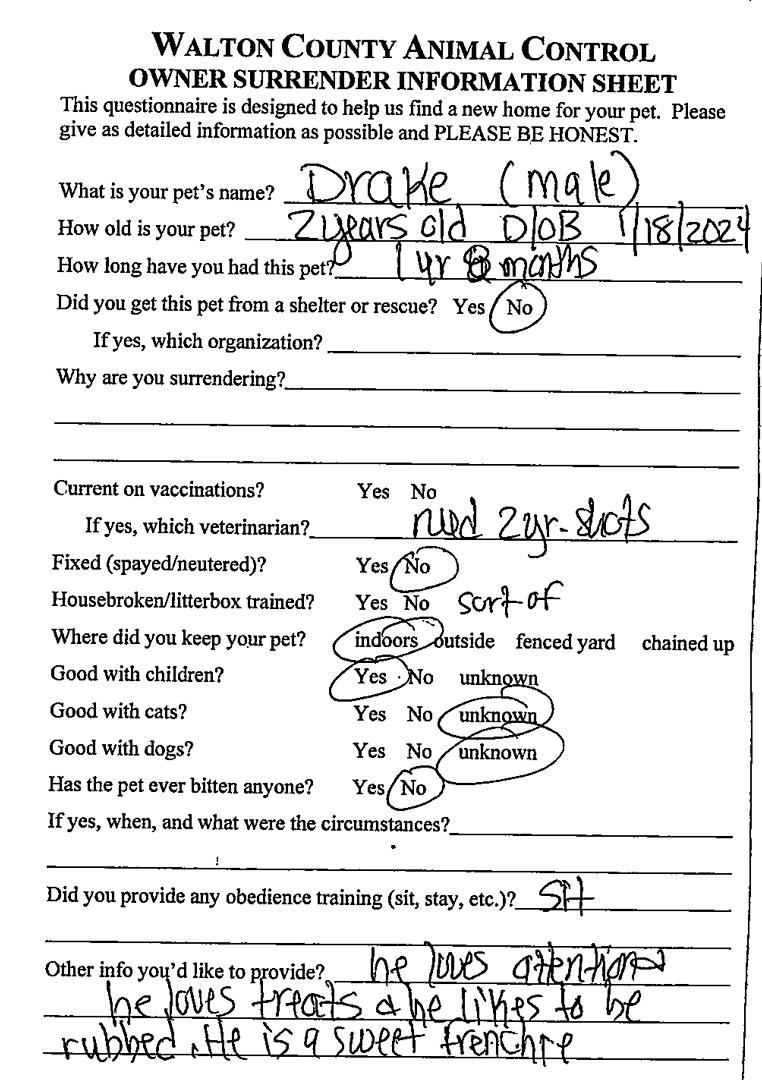 WALTON COUNTY ANIMAL CONTROL
OWNER SURRENDER INFORMATION SHEET
This questionnaire is designed to help us find a new home for your pet. Please
give as detailed information as possible and PLEASE BE HONEST.
What is your pet's name? Drake (male)
How old is your pet? 2 years old D/OB 1/18/2024
How long have you had this pet? 1 yr 8 months
Did you get this pet from a shelter or rescue? Yes No
If yes, which organization?
Why are you surrendering?
Current on vaccinations? Yes No
If yes, which veterinarian? need 2 yr. shots
Fixed (spayed/neutered)? Yes No
Housebroken/litterbox trained? Yes No sort of
Where did you keep your pet? indoors outside fenced yard chained up
Good with children? Yes No unknown
Good with cats? Yes No unknown
Good with dogs? Yes No unknown
Has the pet ever bitten anyone? Yes No
If yes, when, and what were the circumstances?
Did you provide any obedience training (sit, stay, etc.)? Sit
Other info you'd like to provide? he loves attention
he loves treats & he likes to be
rubbed. He is a sweet frenchie